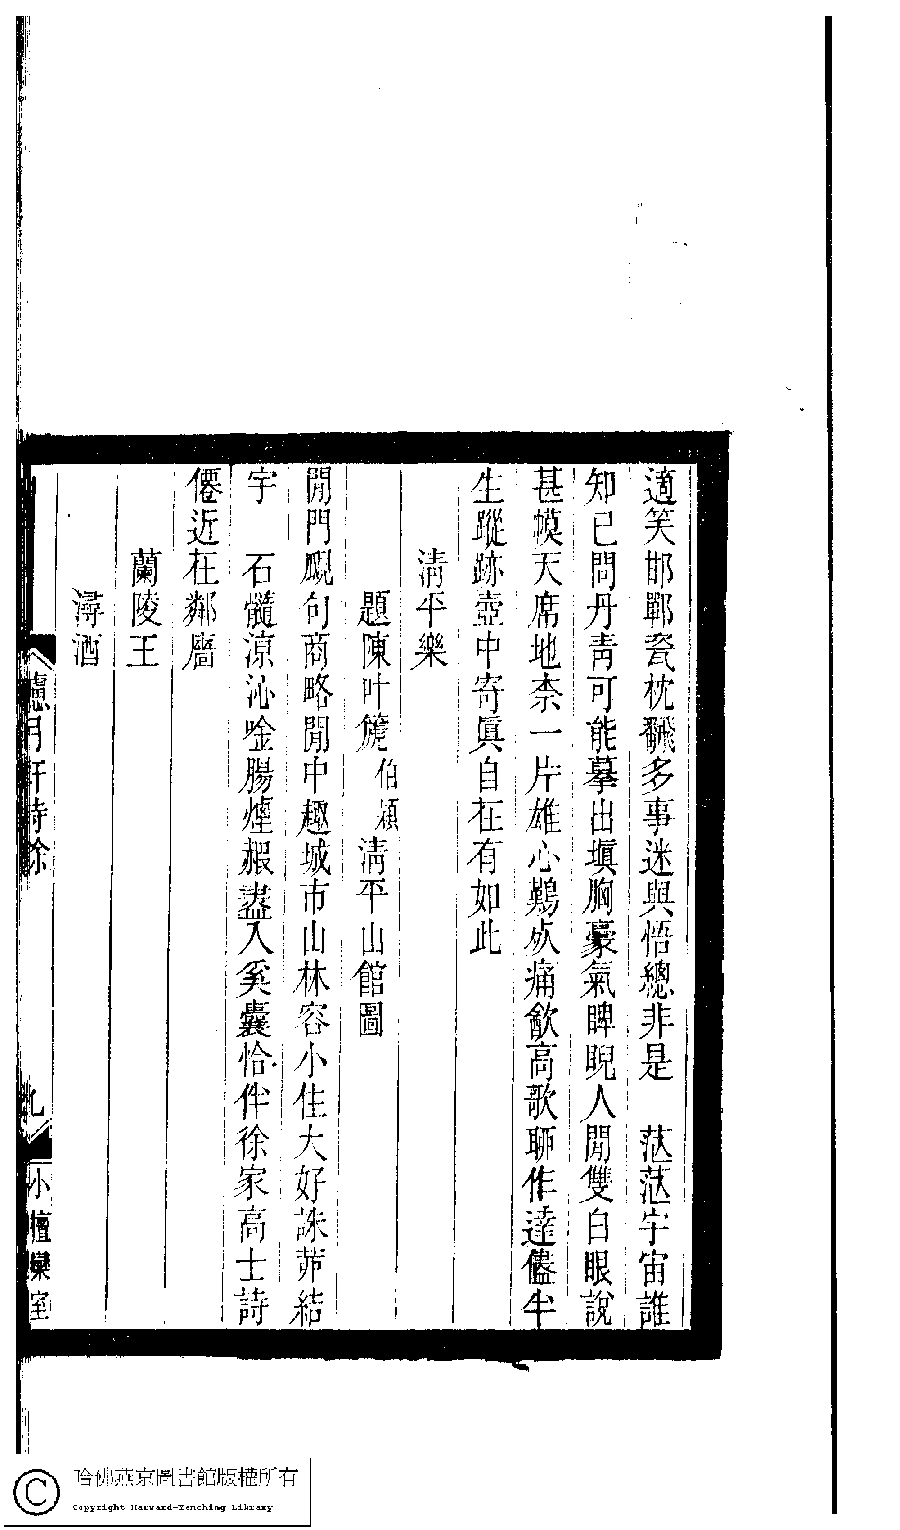 適笑邯鄲瓷枕翻多事迷與悟總非是　茫茫宇宙誰
知己問丹青可能摹出塡胸豪氣睥睨人閒雙白眼說
甚幙天席地柰一片雄心難灰痛飲高歌聊作達儘半
生蹤跡壺中寄眞自在有如此
淸平樂
題陳叶篪伯穎淸平山館圖
閒門覛句商略閒中趣城市山林容小住大好誅茆結
宇　石髓涼沁唫腸煙赧盡入奚囊恰伴徐家高士詩
僊近在鄰牆
蘭陵王
潯酒
慮月軒詩餘
九
小檀欒室
哈佛燕京圖書館版權所有
Copyright Harvard-Yenching Library